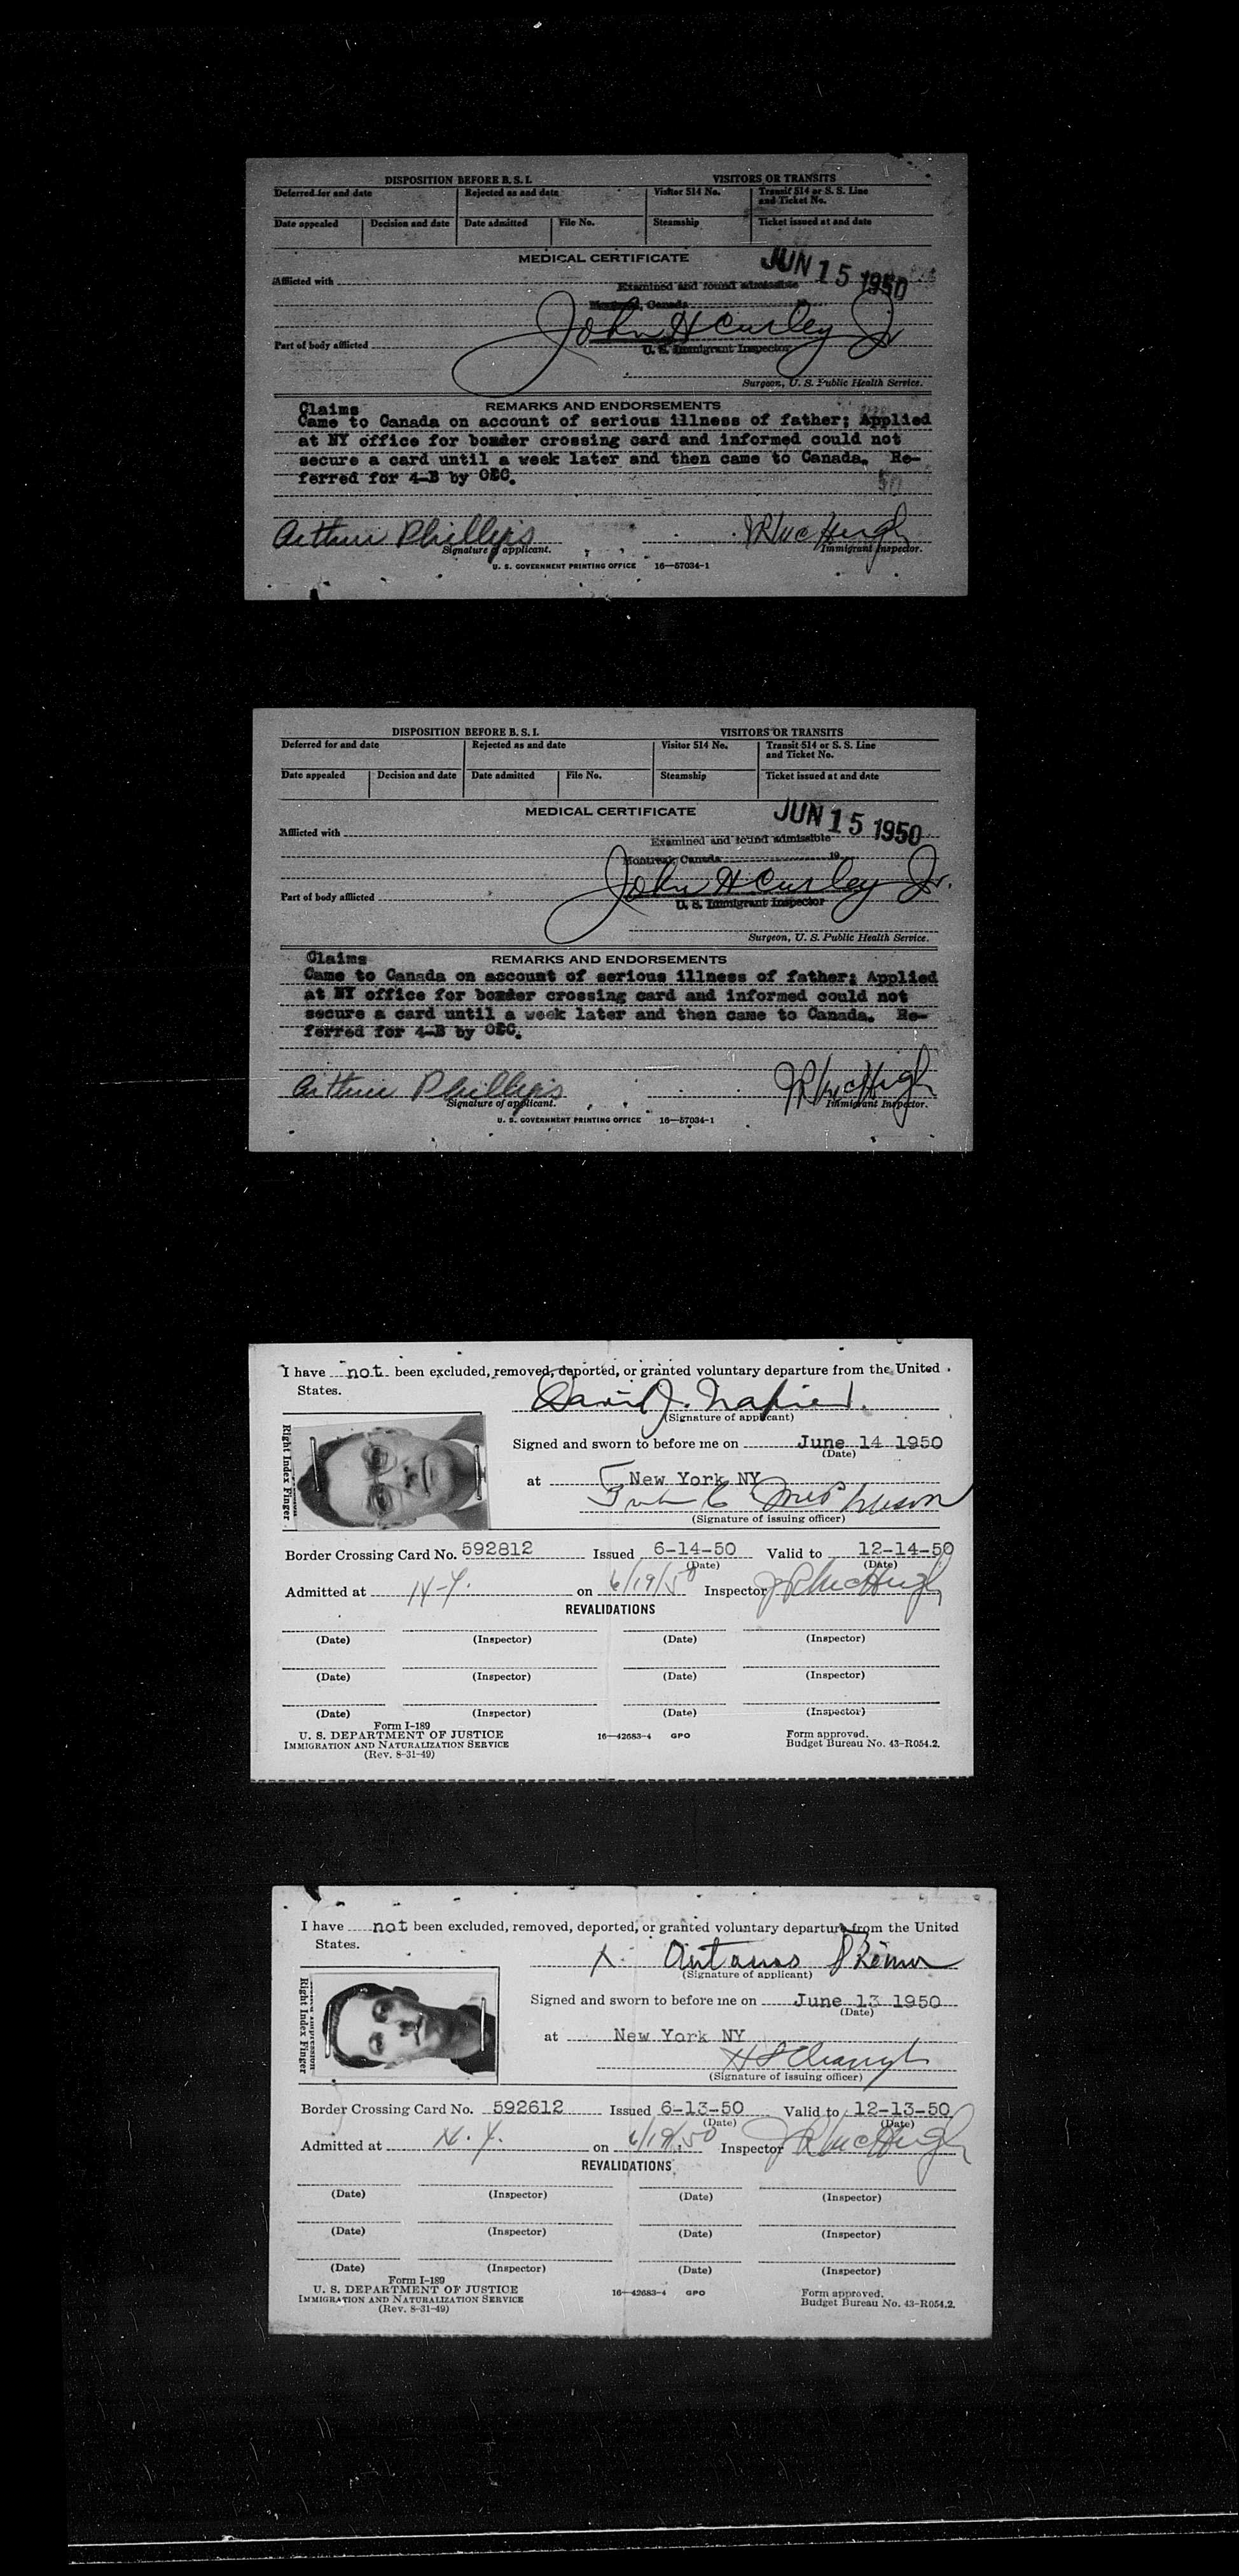 DISPOSITION BEFORE B. S. I. VISITORS OR TRANSITS
Deferred for and date Rejected as and date Visitor 514 No. Transit 514 or S. S. Line and Ticket No.
Date appealed Decision and date Date admitted File No. Steamship Ticket issued at and date
MEDICAL CERTIFICATE
JUN 15 1950
Afflicted with
Examined and found admissible
Montreal, Canada
John H Curley Jr
Part of body afflicted
U. S. Immigrant Inspector
Surgeon, U. S. Public Health Service.
Claims REMARKS AND ENDORSEMENTS
Came to Canada on account of serious illness of father; Applied
at NY office for border crossing card and informed could not
secure a card until a week later and then came to Canada. Re-
ferred for 4-B by OEC.
50
Arthur Phillips JR McHugh
Signature of applicant. Immigrant Inspector.
U. S. GOVERNMENT PRINTING OFFICE 16—57034-1
DISPOSITION BEFORE B. S. I. VISITORS OR TRANSITS
Deferred for and date Rejected as and date Visitor 514 No. Transit 514 or S. S. Line and Ticket No.
Date appealed Decision and date Date admitted File No. Steamship Ticket issued at and date
MEDICAL CERTIFICATE
JUN 15 1950
Afflicted with
Examined and found admissible
Montreal, Canada 19
John H Curley Jr.
Part of body afflicted
U. S. Immigrant Inspector
Surgeon, U. S. Public Health Service.
Claims REMARKS AND ENDORSEMENTS
Came to Canada on account of serious illness of father; Applied
at NY office for border crossing card and informed could not
secure a card until a week later and then came to Canada. Re-
ferred for 4-B by OEC.
Arthur Phillips JR McHugh
Signature of applicant. Immigrant Inspector.
U. S. GOVERNMENT PRINTING OFFICE 16—57034-1
I have not been excluded, removed, deported, or granted voluntary departure from the United
States.
David J. Napier
(Signature of applicant)
Right Index Finger
Signed and sworn to before me on June 14 1950
(Date)
at New York NY
(Signature of issuing officer)
Border Crossing Card No. 592812 Issued 6-14-50 Valid to 12-14-50
(Date) (Date)
Admitted at N-Y. on 6/19/50 Inspector JR McHugh
REVALIDATIONS
(Date) (Inspector) (Date) (Inspector)
(Date) (Inspector) (Date) (Inspector)
(Date) (Inspector) (Date) (Inspector)
Form I-189
U. S. DEPARTMENT OF JUSTICE 16—42683-4 GPO Form approved.
IMMIGRATION AND NATURALIZATION SERVICE Budget Bureau No. 43-R054.2.
(Rev. 8-31-49)
I have not been excluded, removed, deported, or granted voluntary departure from the United
States.
X Antanas
(Signature of applicant)
Right Index Finger
Signed and sworn to before me on June 13 1950
(Date)
at New York NY
(Signature of issuing officer)
Border Crossing Card No. 592612 Issued 6-13-50 Valid to 12-13-50
(Date) (Date)
Admitted at N. Y. on 6/19/50 Inspector JR McHugh
REVALIDATIONS
(Date) (Inspector) (Date) (Inspector)
(Date) (Inspector) (Date) (Inspector)
(Date) (Inspector) (Date) (Inspector)
Form I-189
U. S. DEPARTMENT OF JUSTICE 16—42683-4 GPO Form approved.
IMMIGRATION AND NATURALIZATION SERVICE Budget Bureau No. 43-R054.2.
(Rev. 8-31-49)